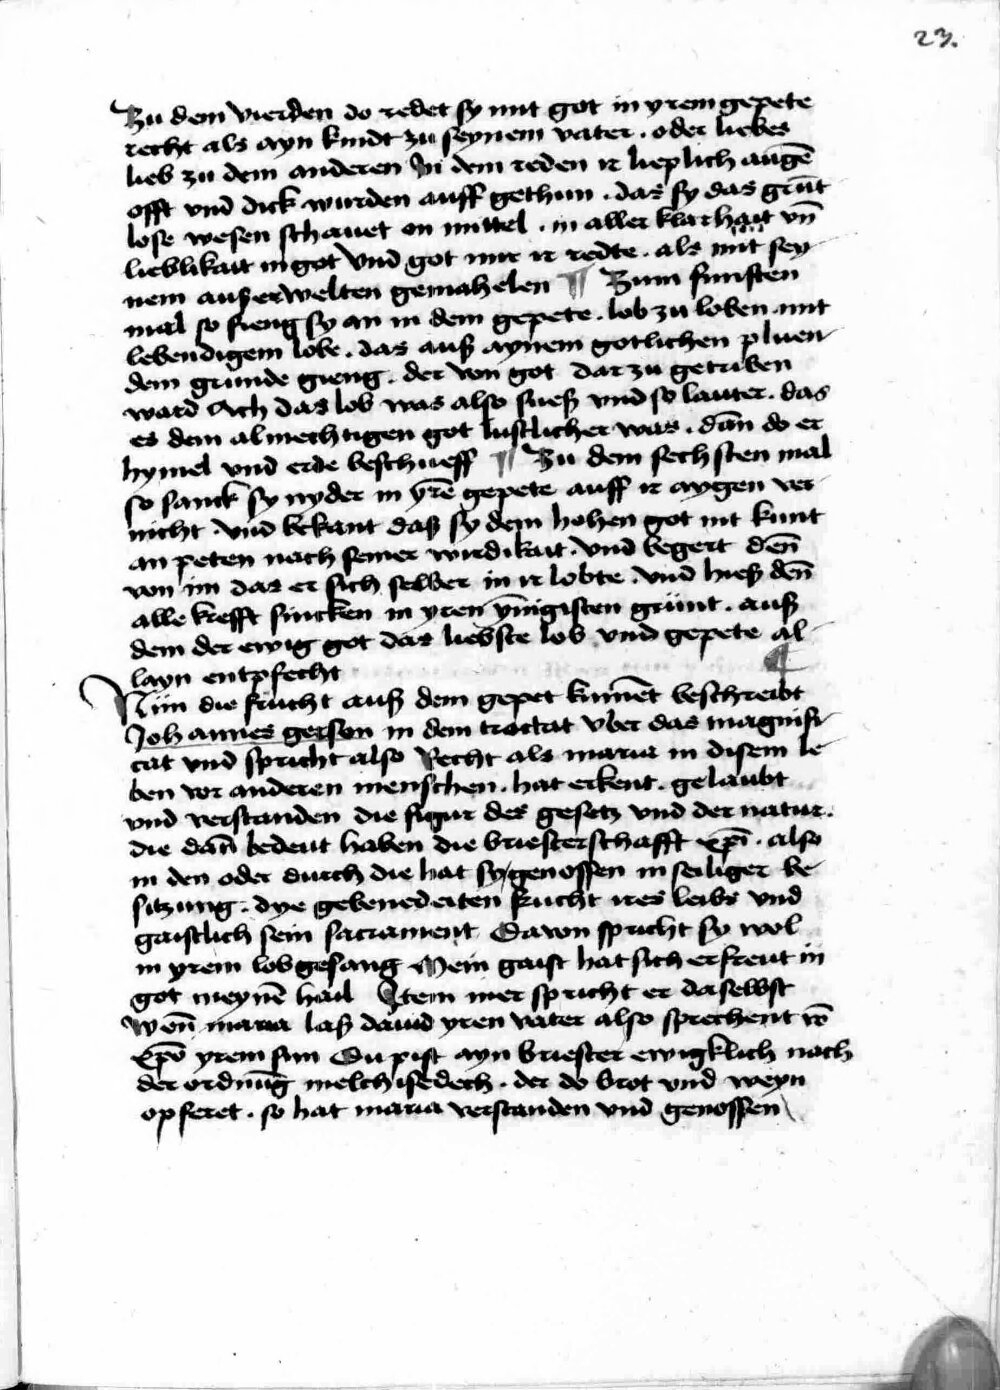 23.
Zu dem vierden do redet sy mit got in yrem gepete
recht als ayn kindt zu seynem vater . oder liebes
lieb zu dem anderen In dem reden ir lieplich augē
offt vnd dick wurden auff gethun . das sy das grūt
lose wesen schauet on mittel . in aller klarhait vn̄
lieblikait in got vnd got mit ir redte . als mit sey
nem außerwelten gemahelen ¶ Zum funften
mal so fieng sy an in dem gepete . lob zu loben mit
lebendigem lobe . das auß aynem gotlichen pluen
dem grunde gieng . der von got dar zu getriben
ward Ach das lob was also sueß vnd so lauter . das
es dem almechtigen got lustlicher was . dān do er
hymel vnd erde beschueff ¶ Zu dem sechsten mal
so sanck sy nyder in yrē gepete auff ir aygen ver
nicht . vnd bekant daß sy dem hohen got nit kunt
an peten nach seiner wirdikait . vnd begert den̄
von im das er sich selber in ir lobte . vnd hieß den̄
alle krefft sincken in yren yn̄igisten grünt . auß
dem der ewig got das liebste lob vnd gepete al
layn entpfecht ¶
Nün die frücht auß dem gepet kūmēt beschreibt
Johannes gerson in dem tractat vber das magnifi
cat vnd spricht also Recht als maria in disem le
ben vor anderen menschen . hat erkent . gelaubt
vnd verstanden die figur des gesetz vnd der natur .
die dan̄ bedeut haben die briesterschafft xp̄i . also
in den oder durch die hat sy genossen in seiliger be
sitzung . dye gebenedeiten frucht ires leibs vnd
gaistlich sein sacrament Dauon spricht sy wol
in yrem lobgesang Mein gaist hat sich erfreut in
got meynē hail Item mer spricht er daselbst
Wen̄ maria laß dauid yren vater also sprechent vō
xp̄o yrem sun Du pist ayn briester ewigklich nach
der ordnūg melchisedech . der do brot vnd weyn
opferet . so hat maria verstanden vnd genossen